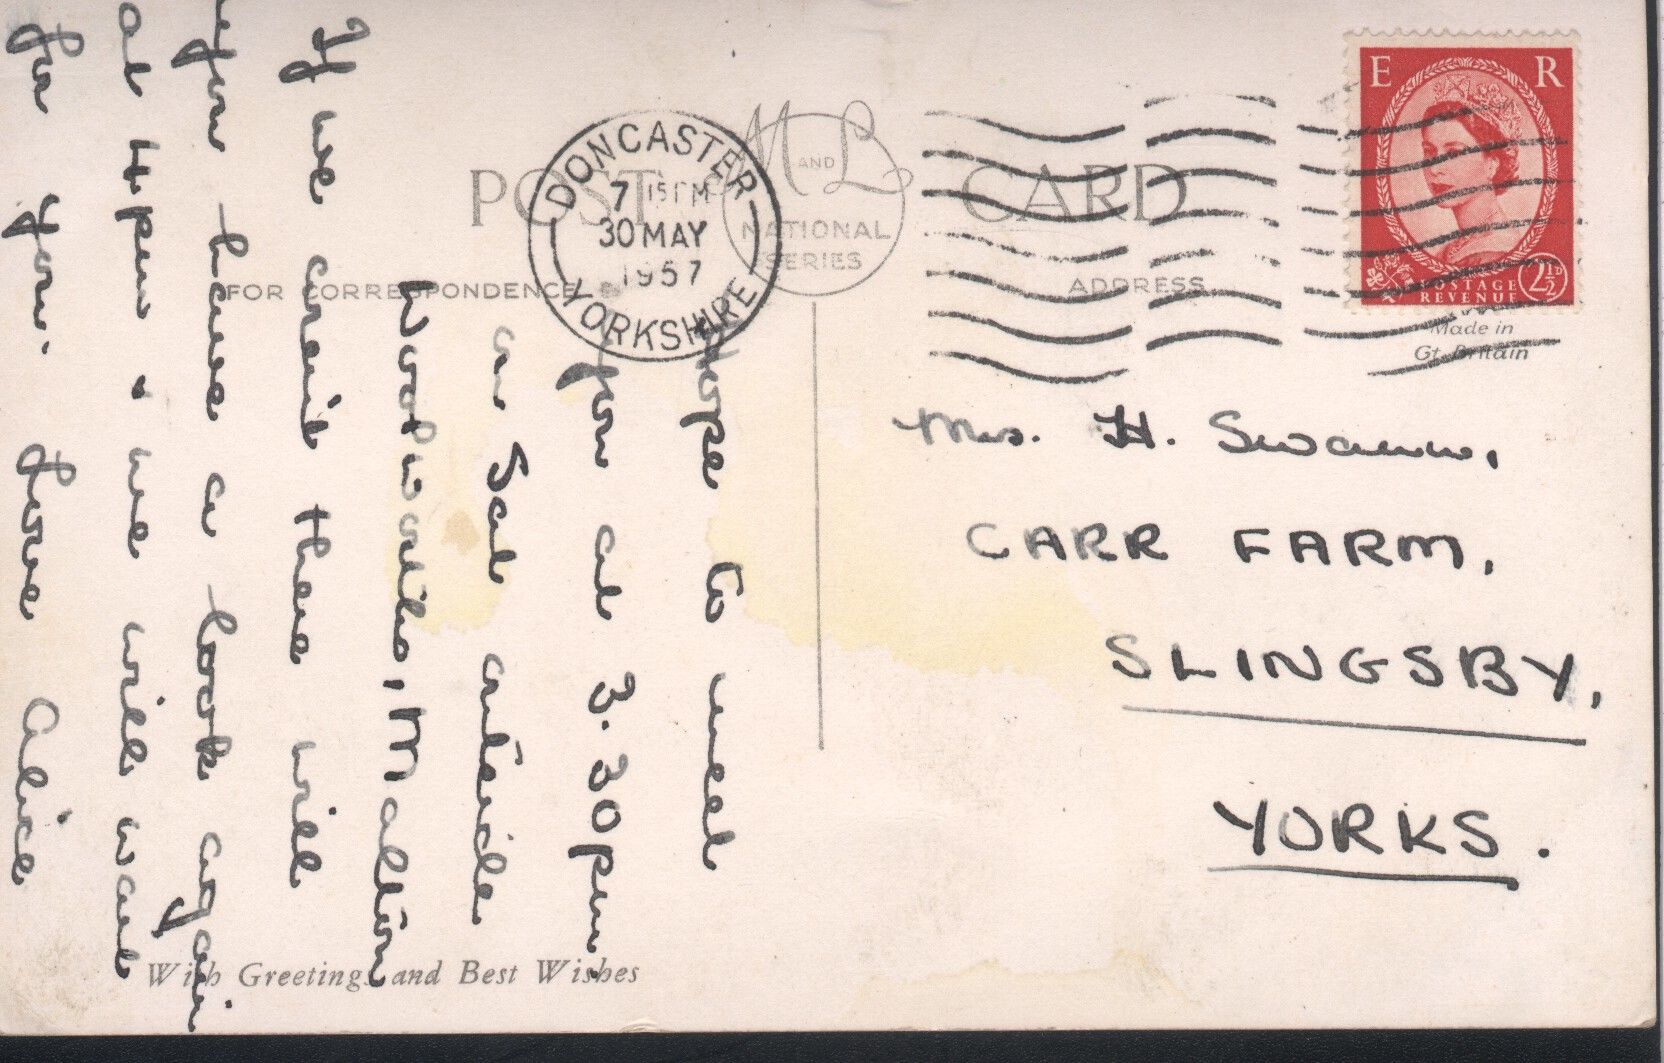 POST CARD
M AND L
NATIONAL
SERIES
FOR CORRESPONDENCE
ADDRESS
DONCASTER
7 15 PM
30 MAY
1957
YORKSHIRE
E R
POSTAGE
REVENUE
2½D
Made in
Gt. Britain
Hope to meet
you at 3.30pm.
on Sat outside
Woolworths, Malton
If we arent there will
you have a look again
at 4pm & we will wait
for you. Love Alice
Mrs. H. Swann,
CARR FARM,
SLINGSBY,
YORKS.
With Greetings and Best Wishes